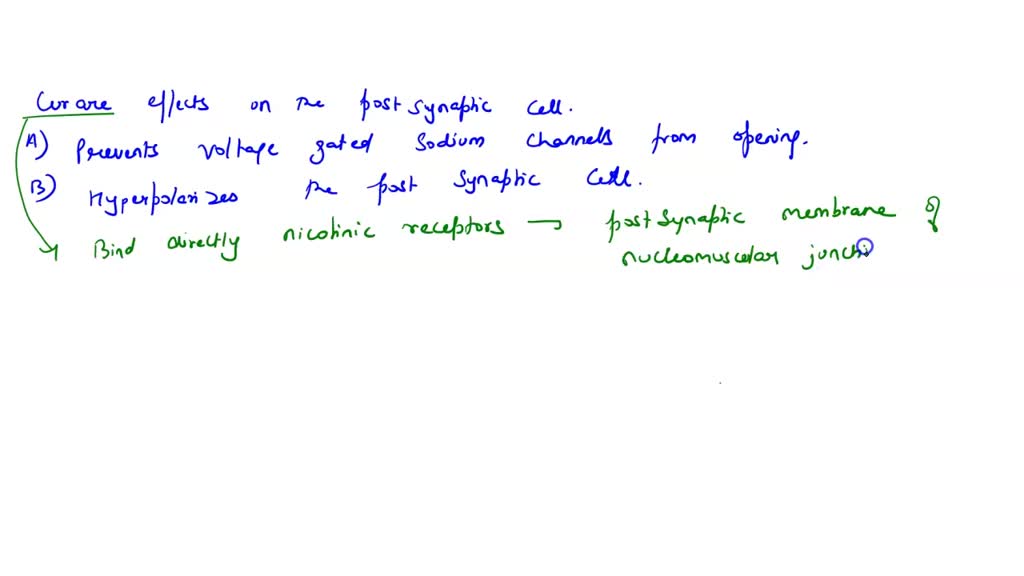 Curare effects on the postsynaptic cell.
A) Prevents voltage gated sodium channels from opening.
B) Hyperpolarizes the post synaptic cell.
Bind directly nicotinic receptors → postsynaptic membrane of
nucleomuscular juncti